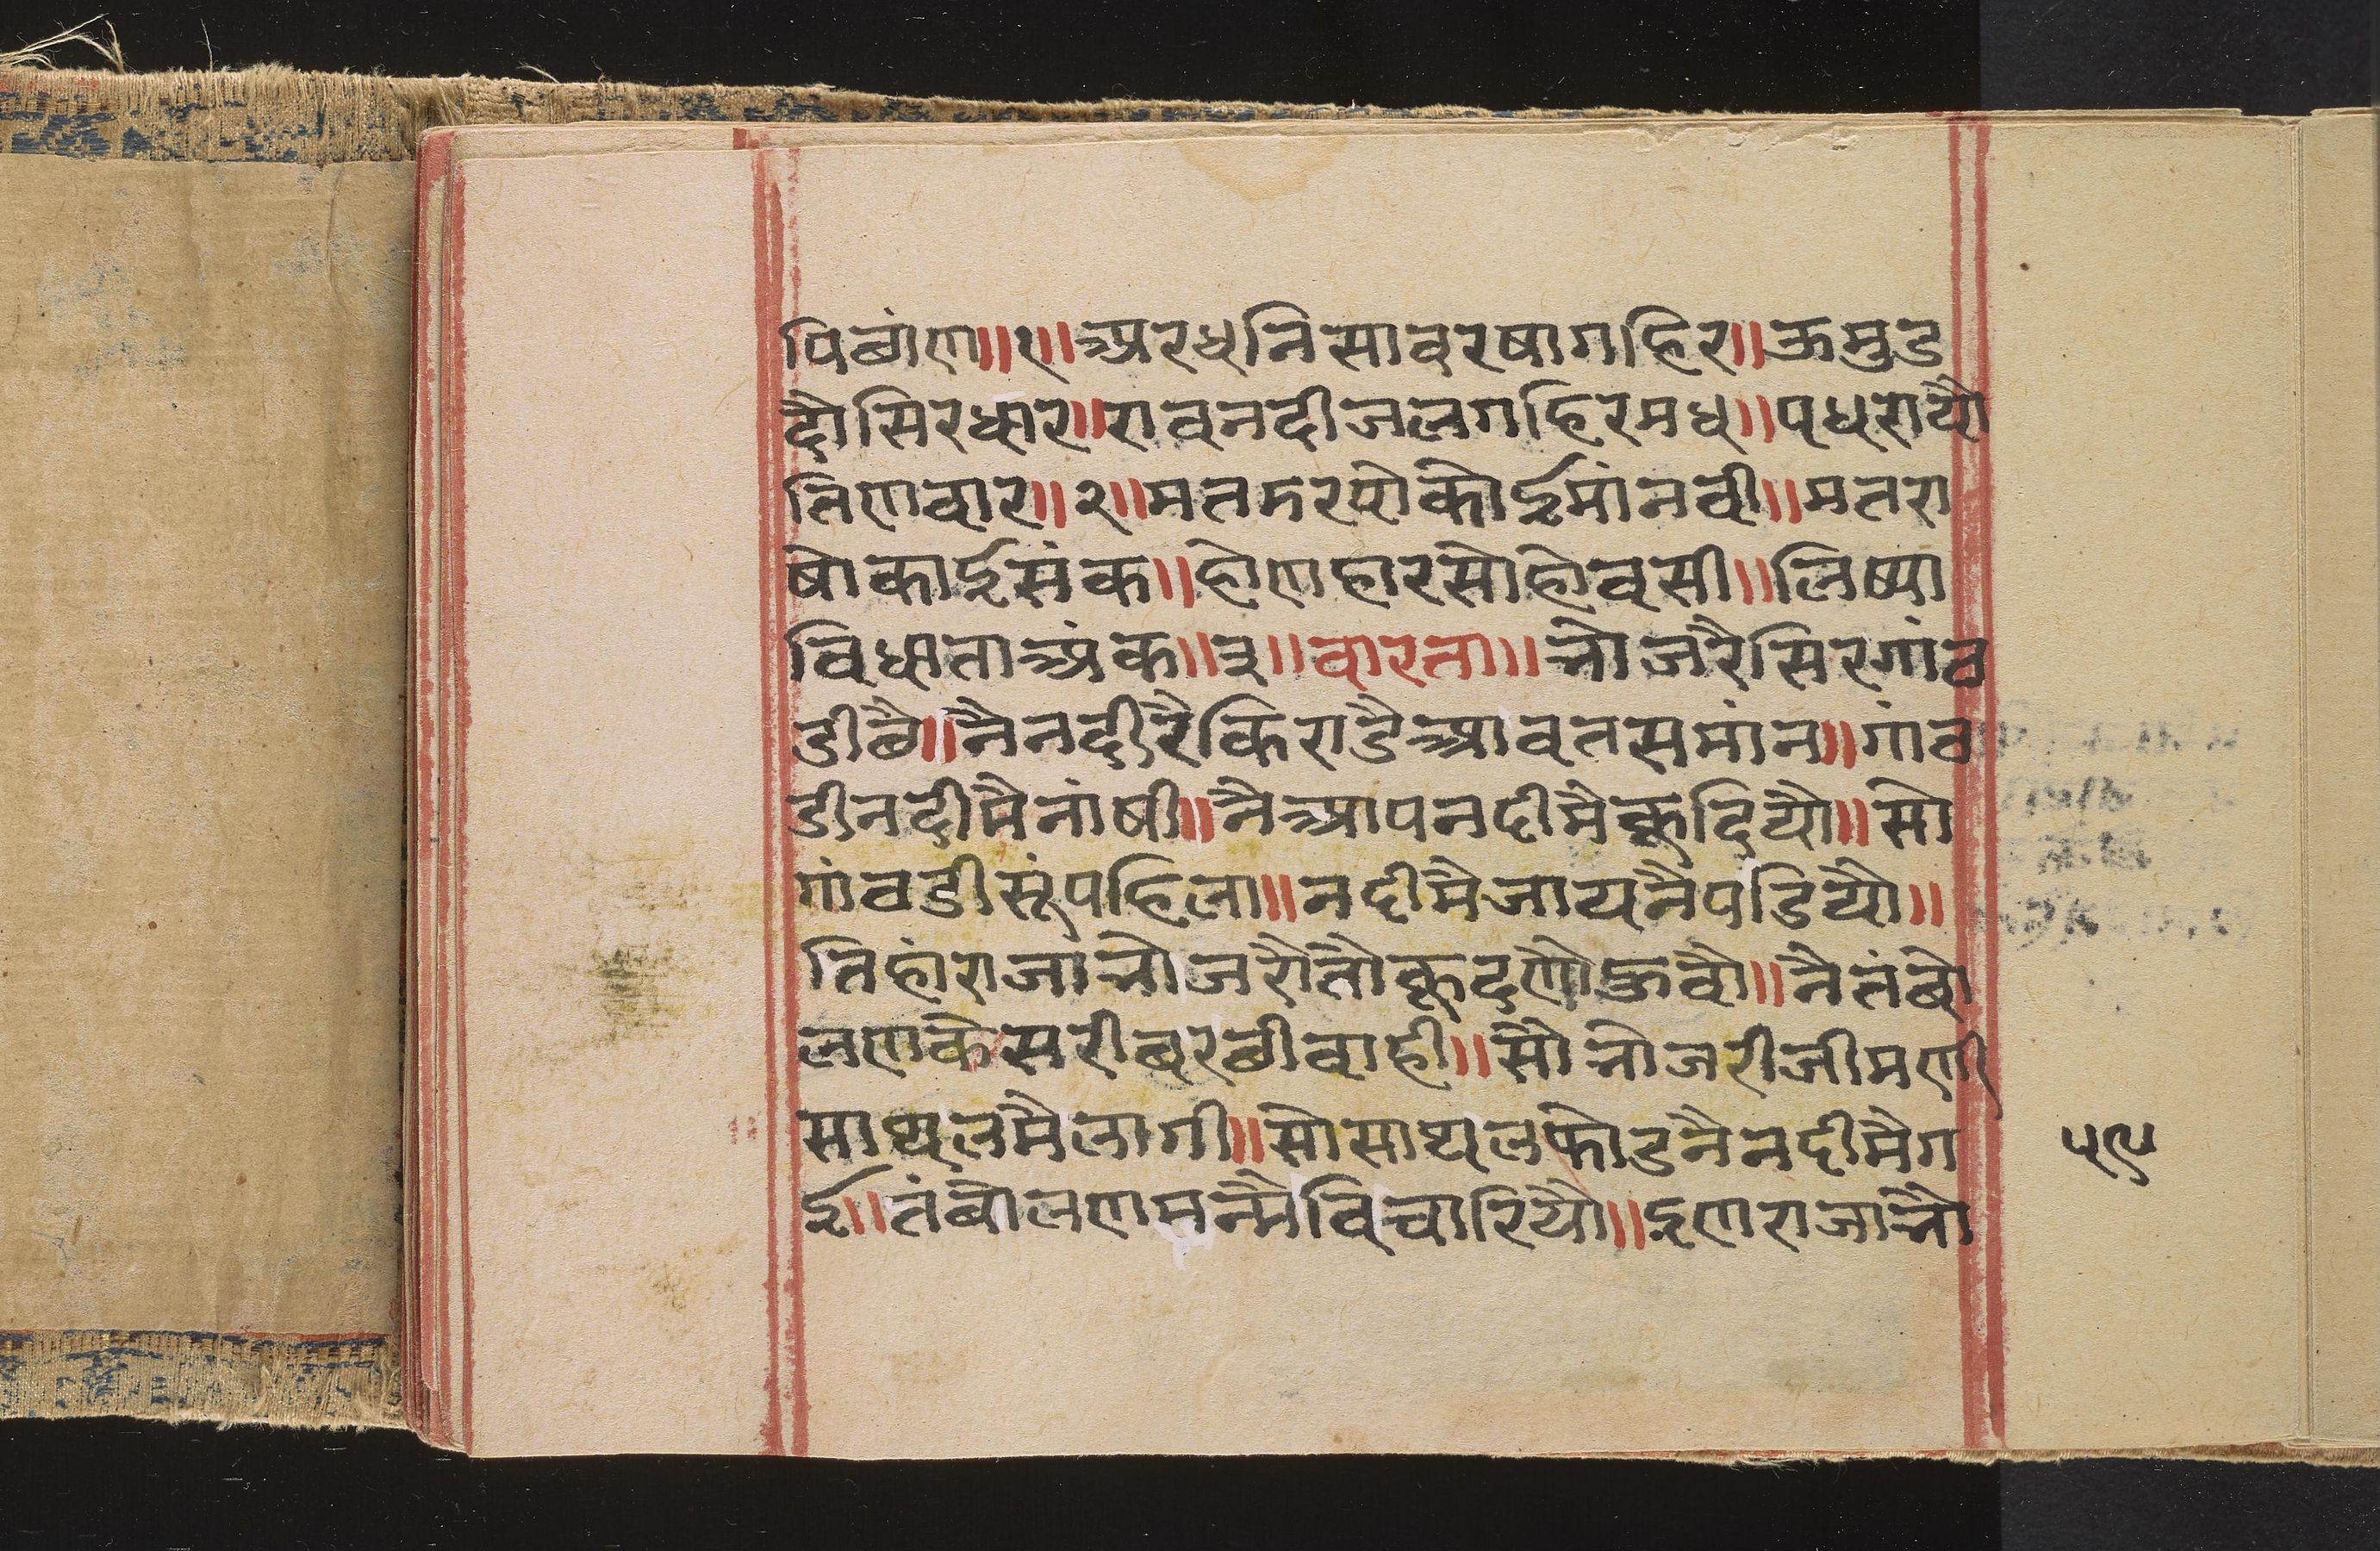 पिबांण॥१॥अरधनिसावरषागहिर॥ऊमुड
दौसिरधार॥रावनदीजलगहिरमध॥पधरायौ
तिणवार॥२॥मतमरपोकोईमांनवी॥मतरा
षोकाईसंक॥होणहारसोहोवसी॥लिष्या
विधाताअंक॥३॥वारता॥नोजरैसिरगांव
डीबै॥नैनदीरैकिराडैआवतसमांन॥गांव
डीनदीमैनांषी॥नैआपनदीमैकूदियौ॥सो
गांवडीसूंपहिला॥नदीमैजायनैपडियौ॥
तिहांराजांनोजरौतौकूदणौऊवौ॥नैतंबो
लणकेसरीबरबीवाही॥सौनोजरीजीमणी
साथलमैलागी॥सोसाथलफोडनैनदीमैग
ई॥तंबोलणमनमैविचारियौ॥इणराजानौ
५९